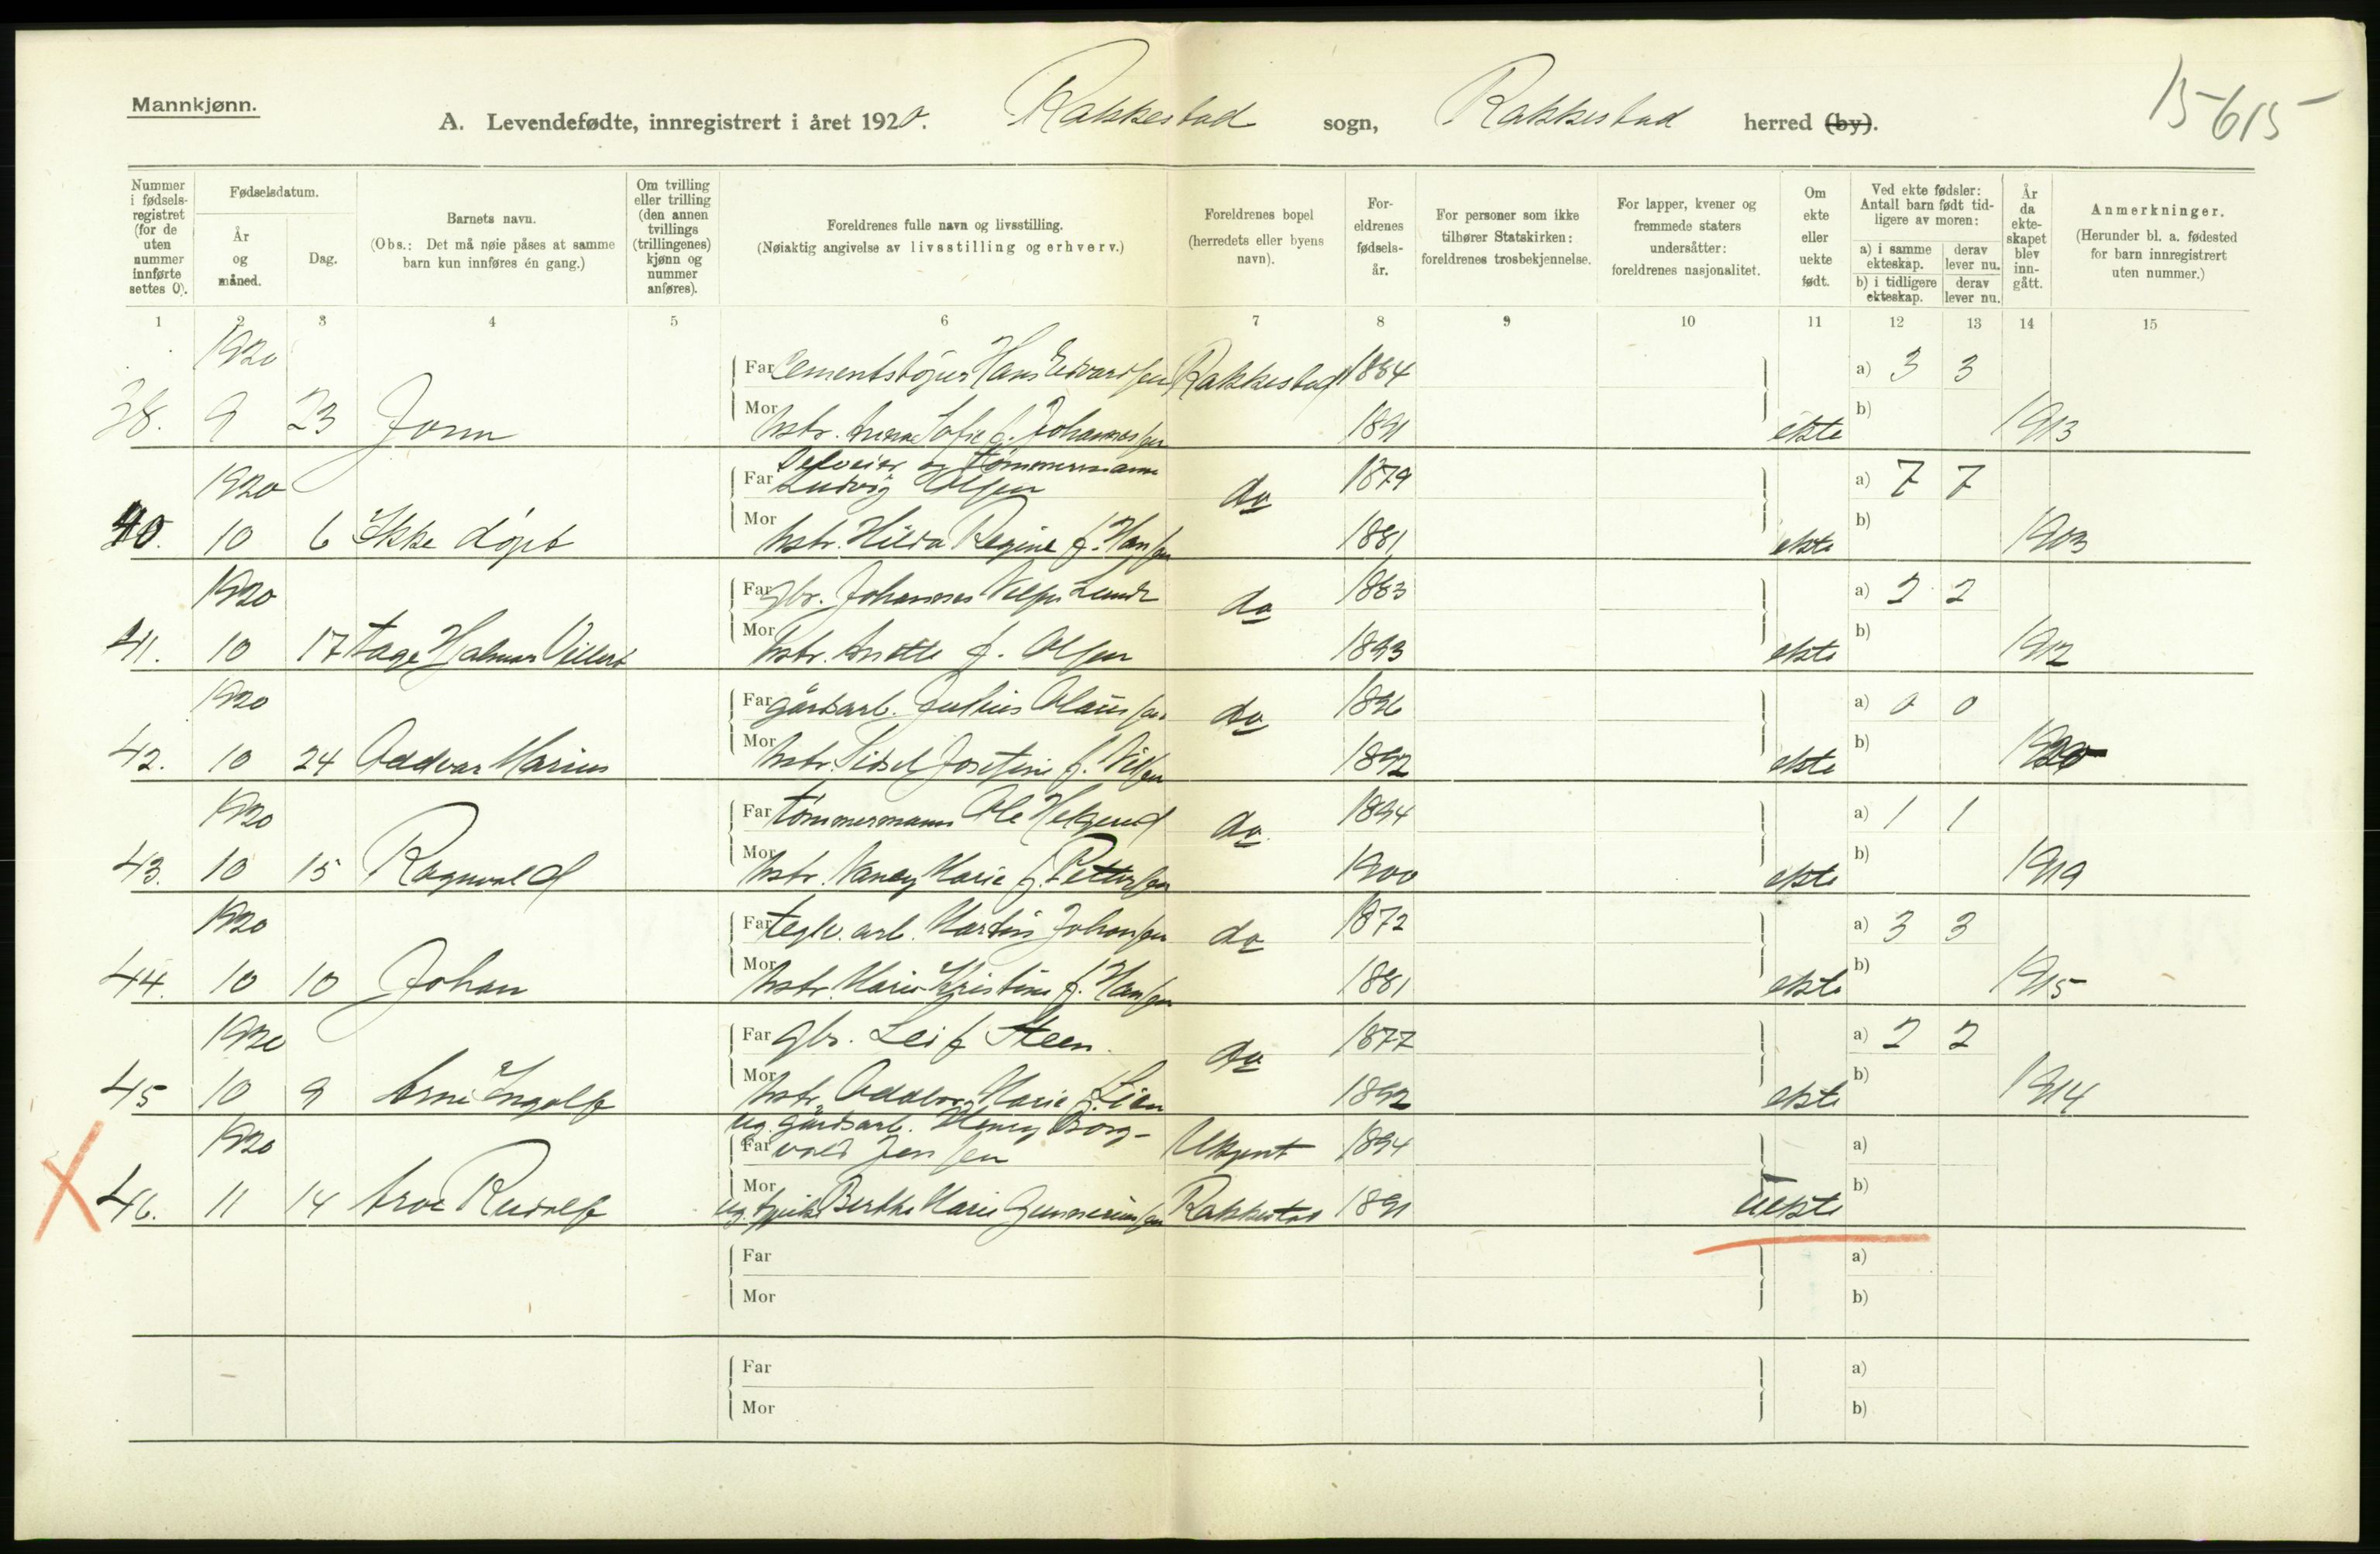 Mannkjønn.
15-615
A. Levendefødte, innregistrert i året 1920. Rakkestad sogn, Rakkestad herred (by).
Nummer i fødsels-registret (for de uten nummer innførte settes 0).
Fødselsdatum.
År og måned.
Dag.
Barnets navn.
(Obs.: Det må nøie påses at samme barn kun innføres én gang.)
Om tvilling eller trilling (den annen tvillings (trillingenes) kjønn og nummer anføres).
Foreldrenes fulle navn og livsstilling.
(Nøiaktig angivelse av livsstilling og erhverv.)
Foreldrenes bopel (herredets eller byens navn).
For-eldrenes fødsels-år.
For personer som ikke tilhører Statskirken: foreldrenes trosbekjennelse.
For lapper, kvener og fremmede staters undersåtter: foreldrenes nasjonalitet.
Om ekte eller uekte født.
Ved ekte fødsler: Antall barn født tid-ligere av moren:
a) i samme ekteskap. derav lever nu.
b) i tidligere ekteskap. derav lever nu.
År da ekte-skapet blev inn-gått.
Anmerkninger.
(Herunder bl. a. fødested for barn innregistrert uten nummer.)
1 2 3 4 5 6 7 8 9 10 11 12 13 14 15
1920 Far Cementstøper Hans Edvardsen Rakkestad 1884 a) 3 3
38. 9 23 Jorn Mor hstr. Anna Sofie f. Johannessen 1891 ekte b) 1913
Selveier og tømmermann
1920 Far Ludvig Olsen do 1879 a) 7 7
40. 10 6 Ikke døpt Mor hstr. Hilda Regine f. Hansen 1881 ekte b) 1903
1920 Far gbr. Johannes Lunde do 1883 a) 2 2
41. 10 17 Tage Halmar Villert Mor hstr. Anette f. Olsen 1893 ekte b) 1912
1920 Far gårdsarb. Julius Olaussen do 1896 a) 0 0
42. 10 24 Oddvar Marius Mor hstr. Sidsel Josefine f. Nilsen 1892 ekte b) 1920
1920 Far tømmermann Ole Helgerud do. 1894 a) 1 1
43. 10 15 Ragnvald Mor hstr. Nancy Marie f. Pettersen 1900 ekte b) 1919
1920 Far teglv. arb. Martin Johansen do 1872 a) 3 3
44. 10 10 Johan Mor hstr. Marie Kristine f. Hansen 1881 ekte b) 1915
1920 Far gbr. Leif Steen do 1877 a) 2 2
45 10 9 Arne Ingolf Mor hstr. Marie f. Lien 1892 ekte b) 1914
ug. gårdsarb. Henry Borg-
1920 Far vald Jensen Ukjent 1894 a)
X 46. 11 14 Arve Rudolf Mor ug. Berthe Marie Gunneriussen Rakkestad 1891 uekte b)
Far a)
Mor b)
Far a)
Mor b)